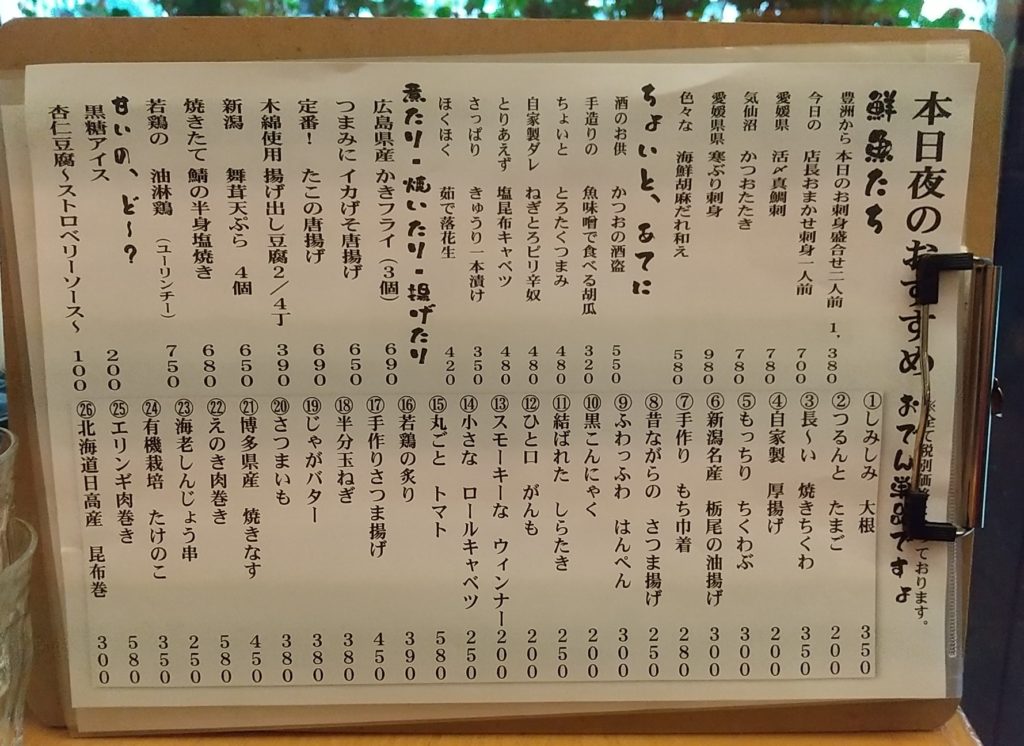 本日夜のおすすめ
鮮魚たち
豊洲から 本日のお刺身盛合せ二人前 1,380
今日の 店長おまかせ刺身一人前 700
愛媛県 活〆真鯛刺 780
気仙沼 かつおたたき 780
愛媛県県 寒ぶり刺身 980
色々な 海鮮胡麻だれ和え 580
ちょいと、あてに
酒のお供 かつおの酒盗 550
手造りの 魚味噌で食べる胡瓜 320
ちょいと とろたくつまみ 480
自家製ダレ ねぎとろピリ辛奴 480
とりあえず 塩昆布キャベツ 480
さっぱり きゅうり一本漬け 350
ほくほく 茹で落花生 420
煮たり・焼いたり・揚げたり
広島県産 かきフライ(3個) 690
つまみに イカげそ唐揚げ 650
定番! たこの唐揚げ 690
木綿使用 揚げ出し豆腐2/4丁 390
新潟 舞茸天ぷら 4個 650
焼きたて 鯖の半身塩焼き 680
若鶏の 油淋鶏(ユーリンチー) 750
甘いの、ど〜?
黒糖アイス 200
杏仁豆腐〜ストロベリーソース〜 100
ております。
おでん単品ですよ
①しみしみ 大根 350
②つるんと たまご 200
③長〜い 焼きちくわ 350
④自家製 厚揚げ 200
⑤もっちり ちくわぶ 300
⑥新潟名産 栃尾の油揚げ 300
⑦手作り もち巾着 280
⑧昔ながらの さつま揚げ 250
⑨ふわっふわ はんぺん 300
⑩黒こんにゃく 200
⑪結ばれた しらたき 250
⑫ひと口 がんも 200
⑬スモーキーな ウィンナー 200
⑭小さな ロールキャベツ 250
⑮丸ごと トマト 580
⑯若鶏の炙り 390
⑰手作りさつま揚げ 450
⑱半分玉ねぎ 380
⑲じゃがバター 380
⑳さつまいも 380
㉑博多県産 焼きなす 450
㉒えのき肉巻き 580
㉓海老しんじょう串 250
㉔有機栽培 たけのこ 350
㉕エリンギ肉巻き 580
㉖北海道日高産 昆布巻 300